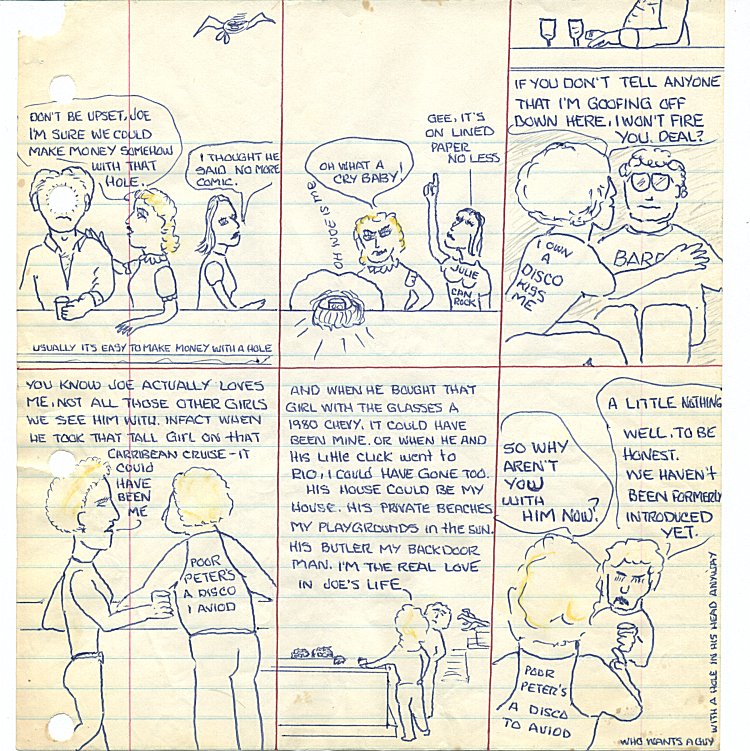 DON'T BE UPSET, JOE
I'M SURE WE COULD
MAKE MONEY SOMEHOW
WITH THAT
HOLE.
I THOUGHT HE
SAID NO MORE
COMIC.
USUALLY IT'S EASY TO MAKE MONEY WITH A HOLE
OH WOE IS ME
OH WHAT A
CRY BABY!
GEE, IT'S
ON LINED
PAPER
NO LESS
JULIE
CAN
ROCK
IF YOU DON'T TELL ANYONE
THAT I'M GOOFING OFF
DOWN HERE, I WON'T FIRE
YOU. DEAL?
I OWN
A
DISCO
KISS
ME
BARF
YOU KNOW JOE ACTUALLY LOVES
ME, NOT ALL THOSE OTHER GIRLS
WE SEE HIM WITH. INFACT WHEN
HE TOOK THAT TALL GIRL ON THAT
CARRIBEAN CRUISE - IT
COULD
HAVE
BEEN
ME
POOR
PETER'S
A DISCO
TO AVIOD
AND WHEN HE BOUGHT THAT
GIRL WITH THE GLASSES A
1980 CHEVY, IT COULD HAVE
BEEN MINE. OR WHEN HE AND
HIS LITTLE CLICK WENT TO
RIO, I COULD HAVE GONE TOO.
HIS HOUSE COULD BE MY
HOUSE. HIS PRIVATE BEACHES
MY PLAYGROUNDS IN THE SUN.
HIS BUTLER MY BACKDOOR
MAN. I'M THE REAL LOVE
IN JOE'S LIFE
SO WHY
AREN'T
YOU
WITH
HIM NOW?
A LITTLE NOTHING
WELL, TO BE
HONEST.
WE HAVEN'T
BEEN FORMERLY
INTRODUCED
YET.
POOR
PETER'S
A DISCO
TO AVIOD
WHO WANTS A GUY WITH A HOLE IN HIS HEAD ANYWAY